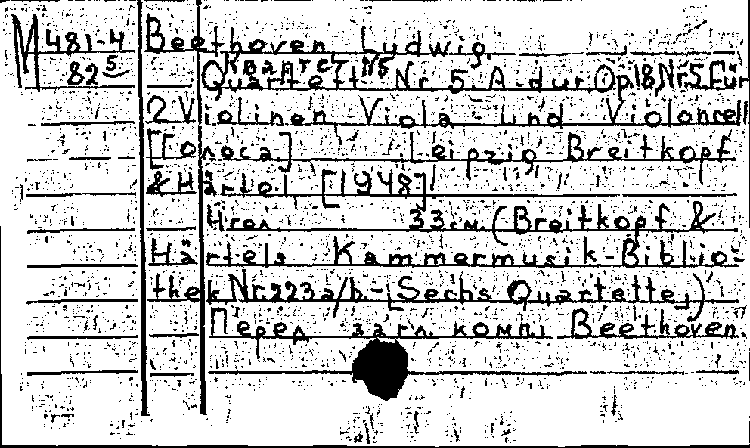 М 481-4 Beethoven, Ludwig.
82⁵ Квартет №5
Quartett Nr. 5. A-dur. Op18,Nr5. Für
2 Violinen Viola und Violoncell
[Голоса] Leipzig Breitkopf
& Härtel [1948]
4гол 33см. (Breitkopf &
Härtels Kammermusik-Biblio-
thek Nr.223a/b.-[Sechs Quartette])
Перед загл. комп. Beethoven.